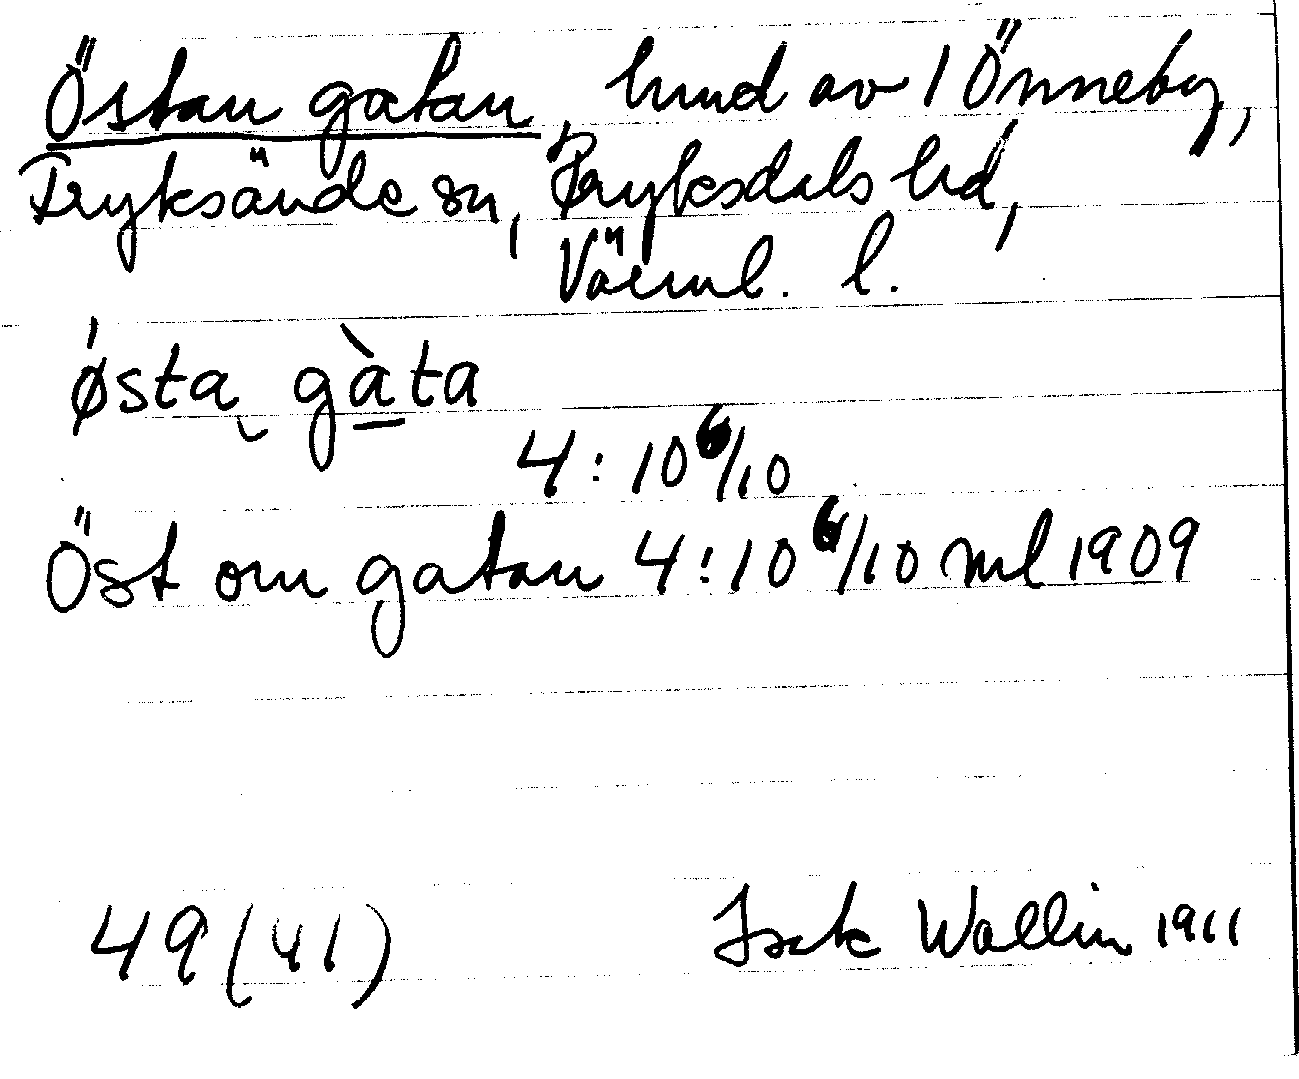 Östan gatan, hmd av 1 Önneby,
Fryksände sn, Fryksdals hd,
Värml. l.
østa gàta
4:10 6/10
Öst om gatan 4:10 6/10 ml 1909
49 (41) Isak Wallin 1911